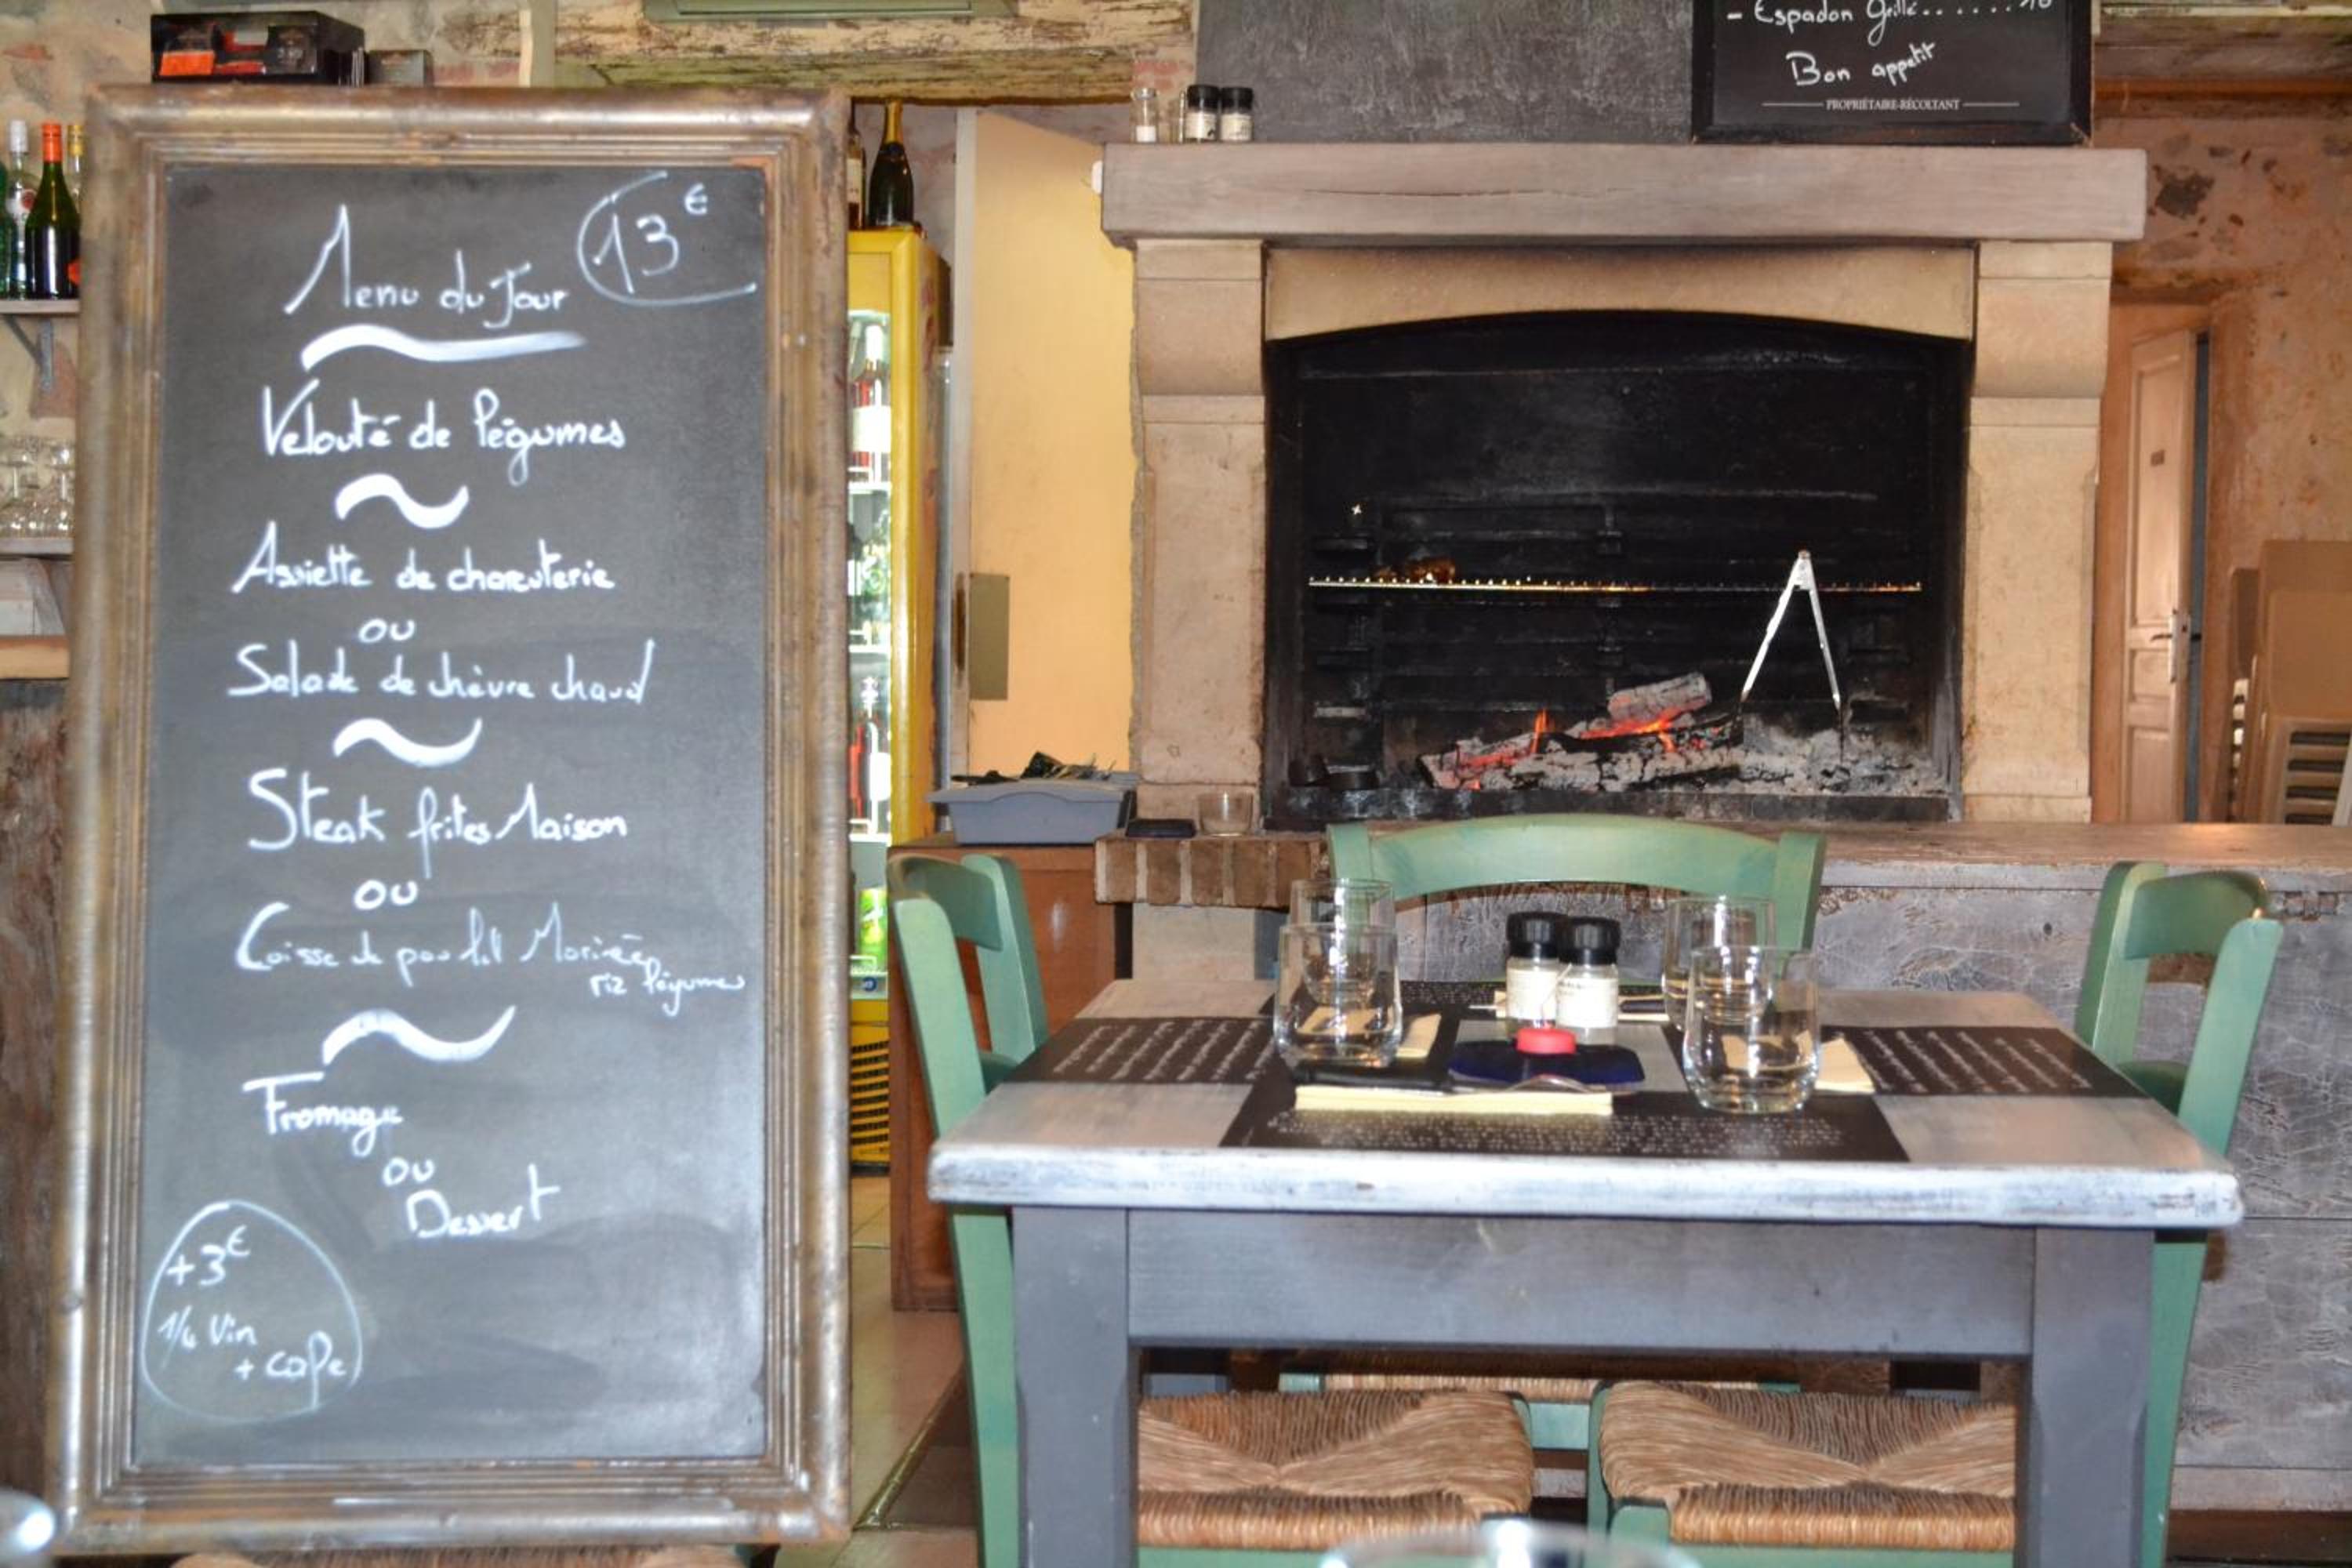 Menu du Jour
13€
Velouté de légumes
Assiette de charcuterie
ou
Salade de chèvre chaud
Steak frites Maison
ou
Caisse de poulet Marinée
riz légumes
Fromage
ou
Dessert
+3€
1/4 Vin
+ cafe
- Espadon Grillé......
Bon appetit
PROPRIÉTAIRE-RÉCOLTANT